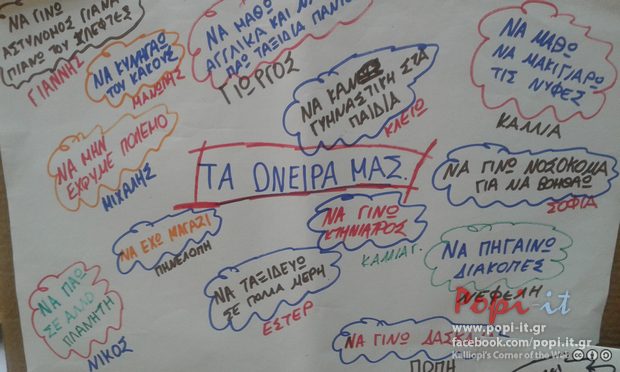 ΝΑ ΓΙΝΩ
ΑΣΤΥΝΟΜΟΣ ΓΙΑ ΝΑ
ΠΙΑΝΩ ΤΟΥ ΚΛΕΦΤΕΣ
ΓΙΑΝΝΗΣ
ΝΑ ΚΥΝΗΓΑΩ
ΤΟΥ ΚΑΚΟΥΣ
ΜΑΝΩΛΗΣ
ΝΑ ΜΑΘΩ
ΑΓΓΛΙΚΑ ΚΑΙ ΝΑ
ΠΑΩ ΤΑΞΙΔΙΑ ΠΑΝΤΟΥ
ΓΙΩΡΓΟΣ
ΝΑ ΚΑΝ
ΓΥΜΝΑΣΤΙΚΗ ΣΤΑ
ΠΑΙΔΙΑ
ΚΛΕΙΩ
ΝΑ ΜΑΘΩ
ΝΑ ΜΑΚΙΓΙΑΡΩ
ΤΙΣ ΝΥΦΕΣ
ΚΑΛΛΙΑ
ΝΑ ΜΗΝ
ΕΧΟΥΜΕ ΠΟΛΕΜΟ
ΜΙΧΑΛΗΣ
ΤΑ ΟΝΕΙΡΑ ΜΑΣ.
ΝΑ ΓΙΝΩ ΝΟΣΟΚΟΜΑ
ΓΙΑ ΝΑ ΒΟΗΘΑΩ
ΣΟΦΙΑ
ΝΑ ΕΧΩ ΜΑΓΑΖΙ
ΠΗΝΕΛΟΠΗ
ΝΑ ΓΙΝΩ
ΚΤΗΝΙΑΤΡΟΣ
ΚΑΛΛΙΑ Γ.
ΝΑ ΠΗΓΑΙΝΩ
ΔΙΑΚΟΠΕΣ
ΝΕΦΕΛΗ
ΝΑ ΠΑΩ
ΣΕ ΑΛΛΟ
ΠΛΑΝΗΤΗ
ΝΙΚΟΣ
ΝΑ ΤΑΞΙΔΕΥΩ
ΣΕ ΠΟΛΛΑ ΜΕΡΗ
ΕΣΤΕΡ
ΝΑ ΓΙΝΩ
ΠΟΠΗ
Popi-it
www.popi-it.gr
facebook.com/popi.it.gr
Kalliopi's Corner of the Web